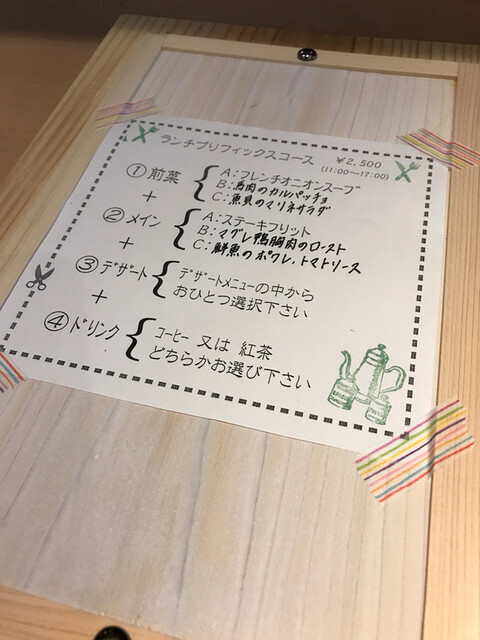 ランチプリフィックスコース ¥2,500
(11:00〜17:00)
①前菜
A:フレンチオニオンスープ
B:馬肉のカルパッチョ
C:魚貝のマリネサラダ
+
②メイン
A:ステーキフリット
B:マグレ鴨胸肉のロースト
C:鮮魚のポワレ,トマトソース
+
③デザート
デザートメニューの中から
おひとつ選択下さい
+
④ドリンク
コーヒー 又は 紅茶
どちらかお選び下さい